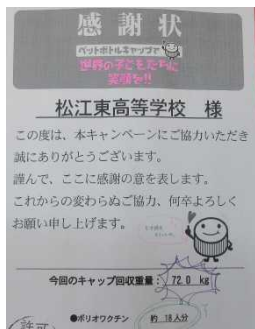 感謝状
ペットボトルキャップで
世界の子どもたちに
笑顔を!!
松江東高等学校 様
この度は、本キャンペーンにご協力いただき
誠にありがとうございます。
謹んで、ここに感謝の意を表します。
これからの変わらぬご協力、何卒よろしく
お願い申し上げます。
今回のキャップ回収重量: 72.0 kg
●ポリオワクチン 約 18人分
許可